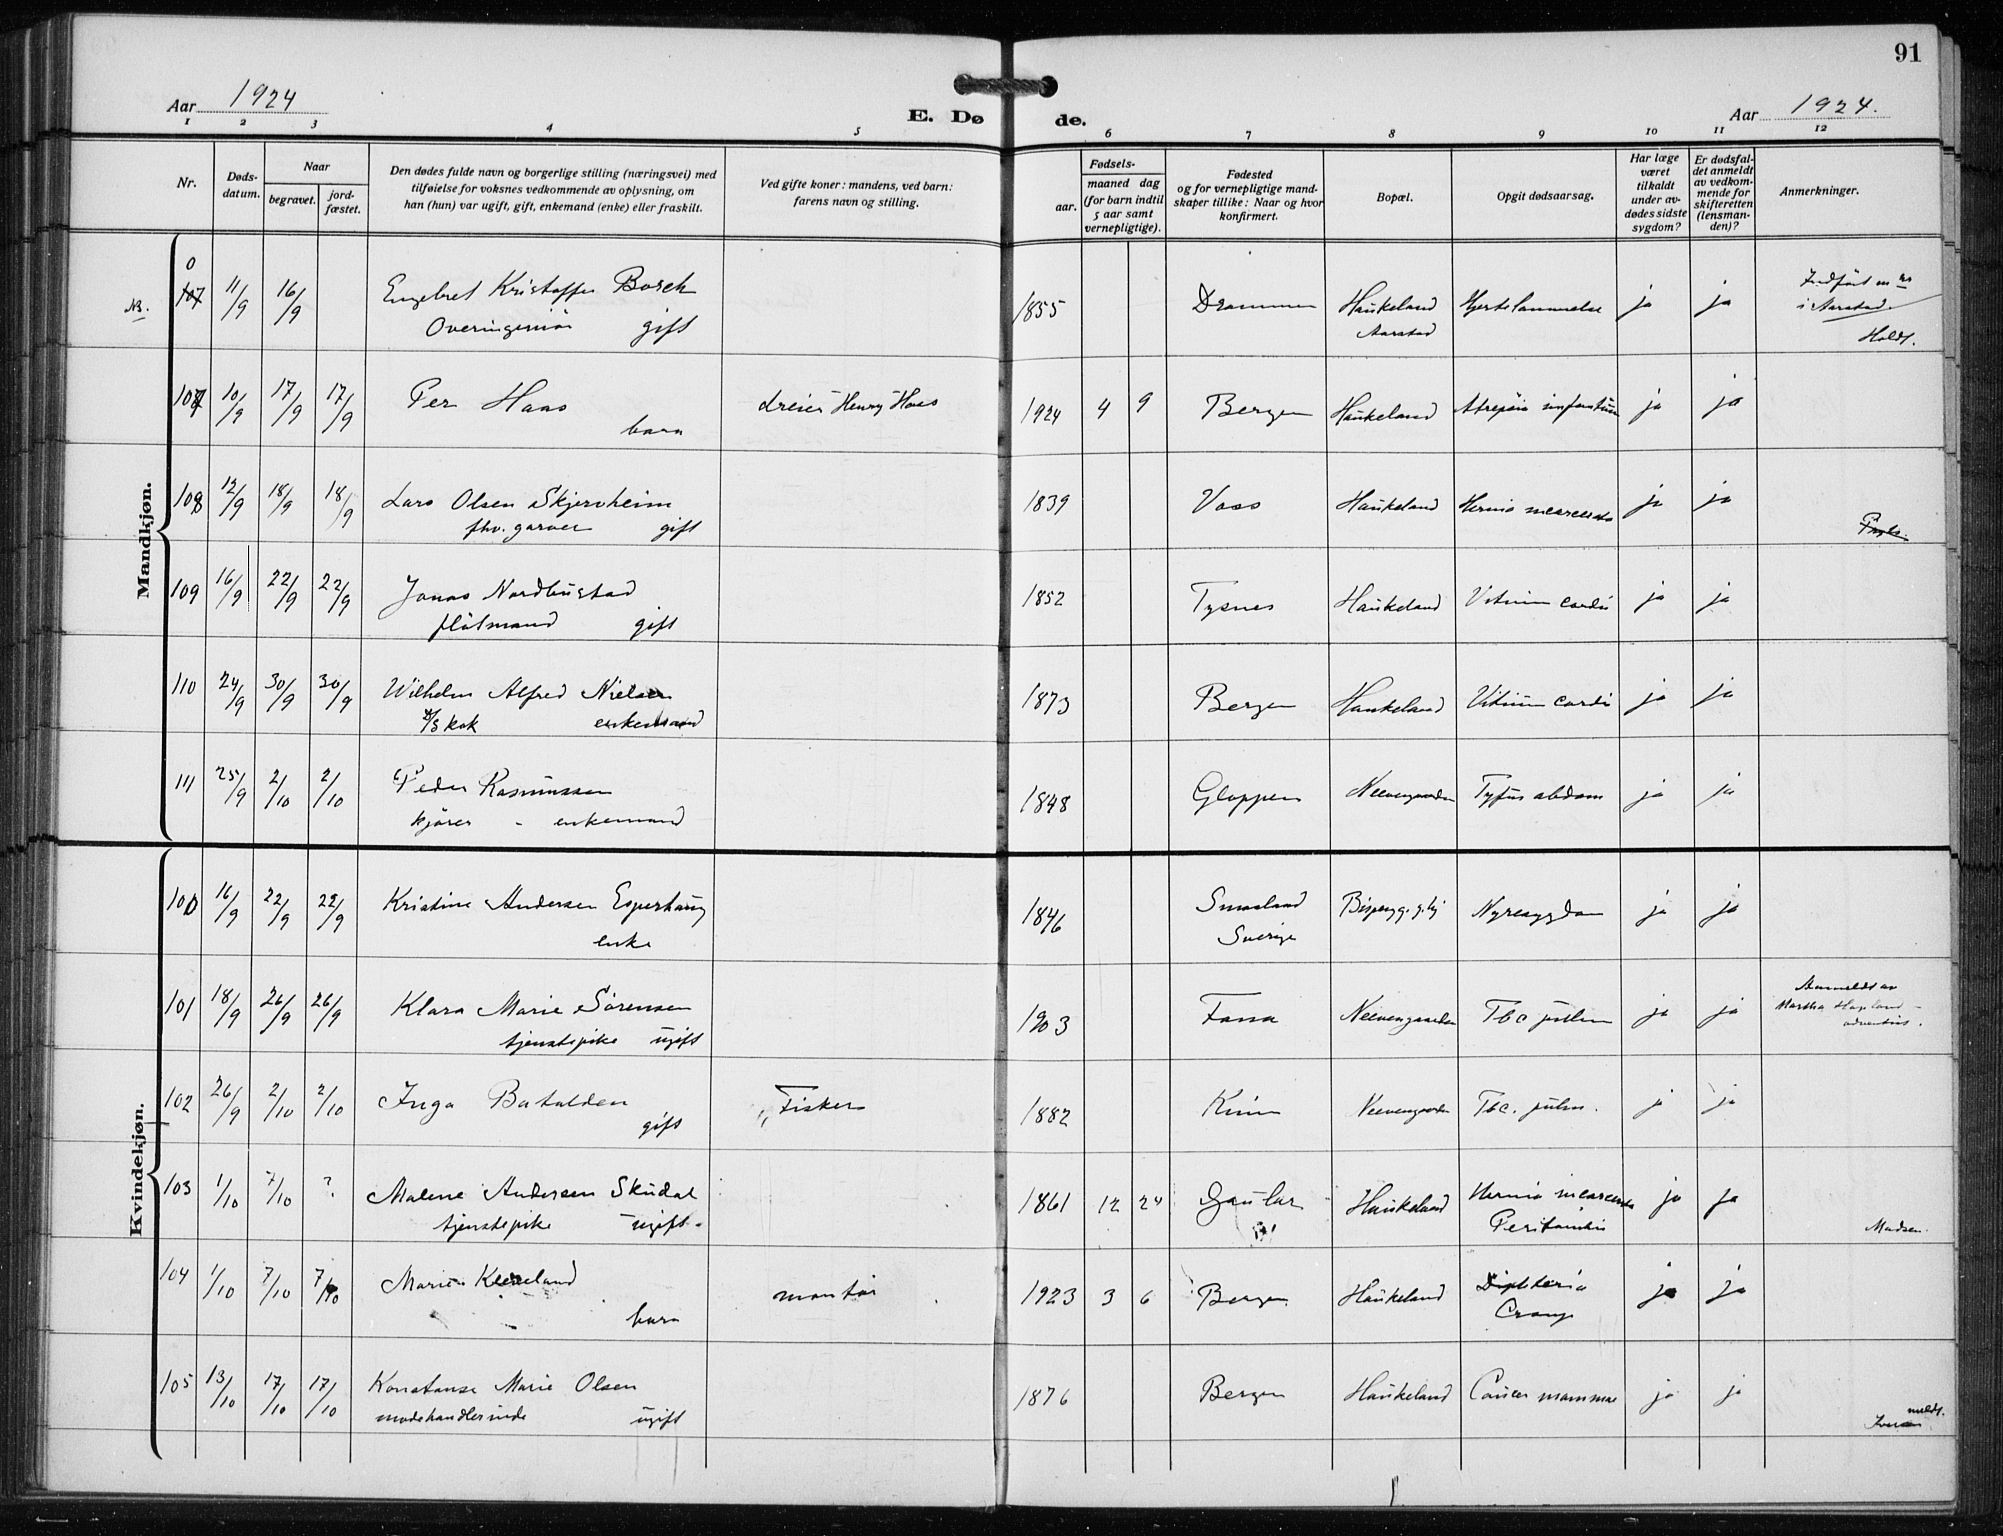 91
Aar 1924
E. Dø de.
Aar 1924.
1 2 3 4 5 6 7 8 9 10 11 12
Nr.
Døds-
datum.
Naar
begravet.
jord-
fæstet.
Den dødes fulde navn og borgerlige stilling (næringsvei) med
tilføielse for voksnes vedkommende av oplysning, om
han (hun) var ugift, gift, enkemand (enke) eller fraskilt.
Ved gifte koner: mandens, ved barn:
farens navn og stilling.
Fødsels-
aar.
maaned dag
(for barn indtil
5 aar samt
vernepligtige).
Fødested
og for vernepligtige mand-
skaper tillike: Naar og hvor
konfirmert.
Bopæl.
Opgit dødsaarsag.
Har læge
været
tilkaldt
under av-
dødes sidste
sygdom?
Er dødsfal-
det anmeldt
av vedkom-
mende for
skifteretten
(lensman-
den)?
Anmerkninger.
Mandkjøn.
NB. 0 107 11/9 16/9 Engebret Kristoffer Borch 1855 Drammen Haukeland Hjertelammelse ja ja Indført
Overingeniør gift Aarstad i Aarstad.
Holdt.
107 10/9 17/9 17/9 Per Haas dreier Henry Haas 1924 4 9 Bergen Haukeland Atrepsia infantum ja ja
barn
108 12/9 18/9 18/9 Lars Olsen Skjervheim 1839 Voss Haukeland Hernia incarcerata ja ja
fhv. garver gift
109 16/9 22/9 22/9 Jonas Nordbustad 1852 Tysnes Haukeland Vitium cordis ja ja
flåtmand gift
110 24/9 30/9 30/9 Wilhelm Alfred Nielsen 1873 Bergen Haukeland Vitium cordis ja ja
d/s kok enkemand
111 25/9 2/10 2/10 Peder Rasmussen 1848 Gloppen Neevengaarden Tyfus abdom ja ja
kjører - enkemand
Kvindekjøn.
100 16/9 22/9 22/9 Kristine Andersen 1846 Smaaland Nyresygdom ja ja
enke Sverige
101 18/9 26/9 26/9 Klara Marie Sørensen 1903 Fana Neevengaarden Tbc pulm ja ja Anmeldt av
tjenestepike ugift Martha Hopland -
adventist.
102 26/9 2/10 2/10 Inga Batalden Fisker 1882 Kinn Neevengaarden Tbc. pulm. ja ja
gift
103 1/10 7/10 ? Malene Andersen Skudal 1861 12 24 Gaular Haukeland Hernia incarcerata ja ja
tjenestepike ugift. Peritonitis Madsen.
104 1/10 7/10 7/10 Marie Kleiveland montør 1923 3 6 Bergen Haukeland Difteria ja ja
barn Croup
105 13/10 17/10 17/10 Konstanse Marie Olsen 1876 Bergen Haukeland Cancer mammae ja ja
motehandlerinde ugift meldt.